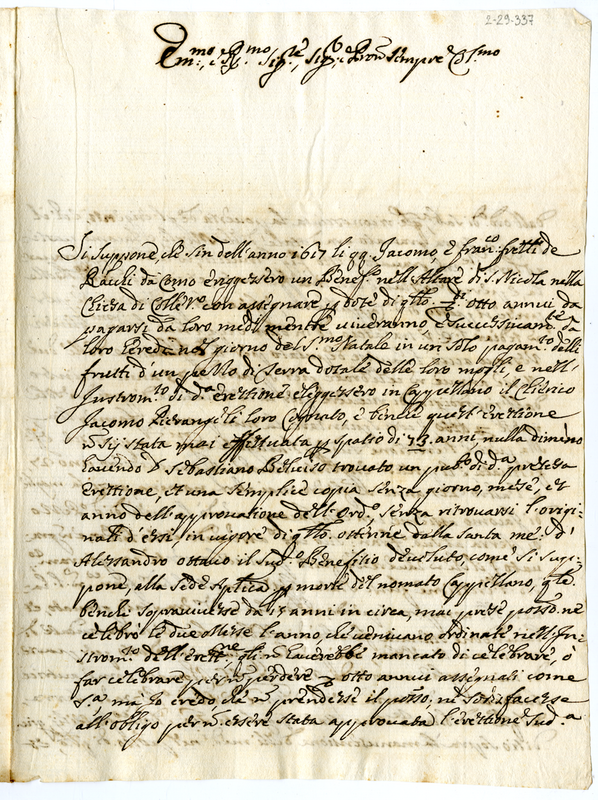 2-29-337
Em:mo, e R:mo Sig:re, Sig:r e Pron Sempre Col:mo
Si suppone che sin dell'anno 1617 li qq. Jacomo, e Fran:co fratelli de
Rachi da Como erigessero un Benef:o nell'Altare di S. Nicola nella
Chiesa di con assegnare p dote di q:sto otto annui da
pagarsi da loro medi mentre viveranno, e successivam:te da
loro heredi nel giorno del S:mo Natale in un solo pagam:to delli
frutti d'un pezzo di Terra dotale delle loro mogli, e nell'
Instrom:to di d:a erettione elegessero in Cappellano il Chierico
Jacomo Pierangeli loro Cognato, e benche quest'erettione
n sij stata mai effettuata p spatio di 73 anni, nulla dimeno
havendo D. Sebastiano trovato un pub:o di d:a pretesa
Erettione, et una semplice copia senza giorno, mese, et
anno dell'approvatione dell'Ord:o senza ritrovarsi l'origi-
nali d'essi, in vigore di q:sto ottenne dalla santa me: d'
Alessandro ottavo il sud:o Benefitio devoluto, come si sup-
pone, alla Sede Aplica p morte del nomato Cappellano, q:le
benche sopravivesse da 13 anni in circa, mai prese posso, ne
celebrò le due Messe l'anno, che venivano ordinate nell'In-
strom:to dell'eret:ne, gli n haverebbe mancato di celebrare, ò
far celebrare, per n perdere otto annui assegnati come
s:a ma Io credo, che n prendesse il posso, ne sodisfacesse
all'obligo per n essere stata approvata l'erettione sud:a